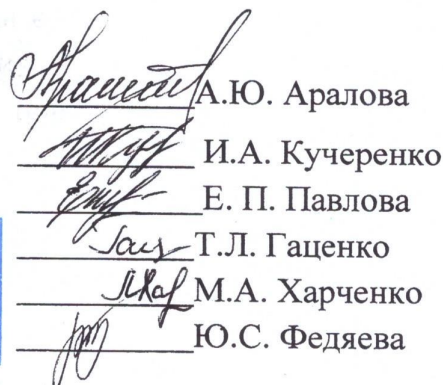 А.Ю. Аралова
И.А. Кучеренко
Е. П. Павлова
Т.Л. Гаценко
М.А. Харченко
Ю.С. Федяева